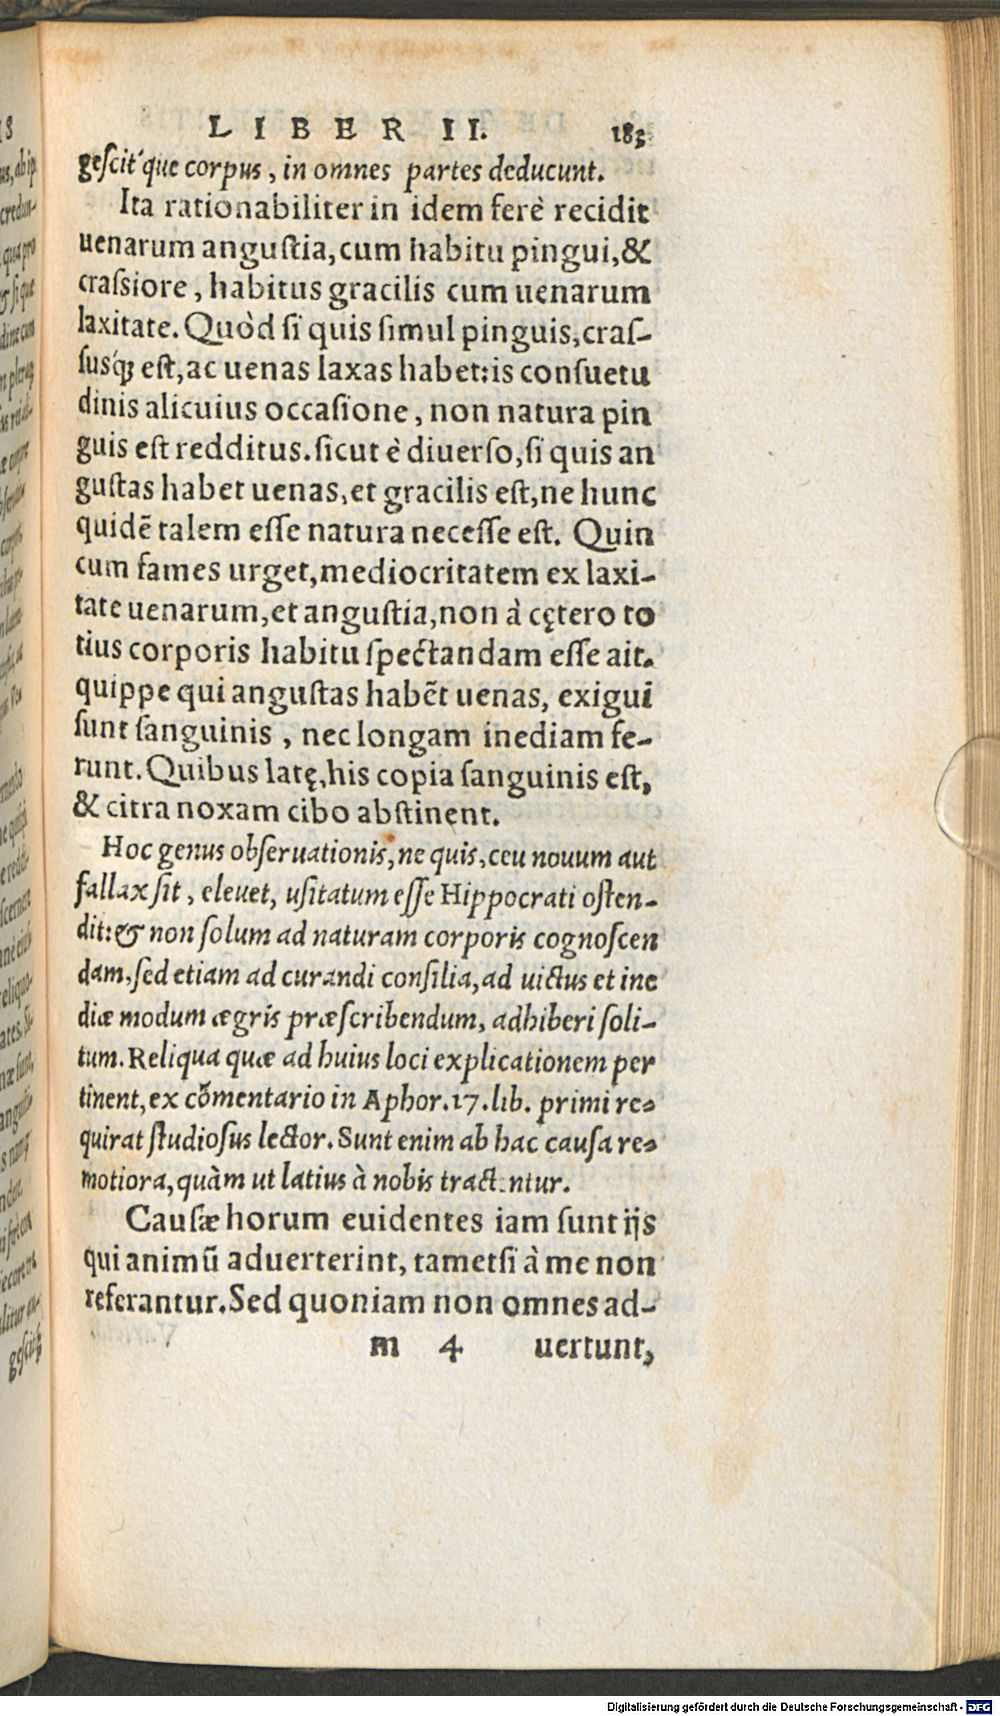 LIBER II. 183
geſcit'que corpus, in omnes partes deducunt.
Ita rationabiliter in idem ferè recidit
uenarum anguſtia, cum habitu pingui, &
craſsiore, habitus gracilis cum uenarum
laxitate. Quòd ſi quis ſimul pinguis, craſ-
ſusq́; eſt, ac uenas laxas habet: is conſuetu
dinis alicuius occaſione, non natura pin
guis eſt redditus. ſicut è diuerſo, ſi quis an
guſtas habet uenas, et gracilis eſt, ne hunc
quidẽ talem eſſe natura neceſſe eſt. Quin
cum fames urget, mediocritatem ex laxi-
tate uenarum, et anguſtia, non à cętero to
tius corporis habitu ſpectandam eſſe ait.
quippe qui anguſtas habẽt uenas, exigui
ſunt ſanguinis, nec longam inediam fe-
runt. Quibus latę, his copia ſanguinis eſt,
& citra noxam cibo abſtinent.
Hoc genus obſeruationis, ne quis, ceu nouum aut
fallax ſit, eleuet, uſitatum eſſe Hippocrati oſten-
dit: & non ſolum ad naturam corporis cognoſcen
dam, ſed etiam ad curandi conſilia, ad uictus et ine
diæ modum ægris præſcribendum, adhiberi ſoli-
tum. Reliqua quæ ad huius loci explicationem per
tinent, ex cõmentario in Aphor. 17. lib. primi re-
quirat ſtudioſus lector. Sunt enim ab hac cauſa re-
motiora, quàm ut latius à nobis tractentur.
Cauſæ horum euidentes iam ſunt ijs
qui animũ aduerterint, tametſi à me non
referantur. Sed quoniam non omnes ad-
m 4 uertunt,
Digitalisierung gefördert durch die Deutsche Forschungsgemeinschaft - DFG